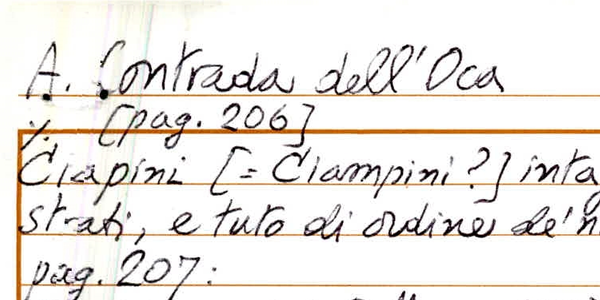 A. Contrada dell'Oca
%. [pag. 206]
Ciapini [= Ciampini?] inta
strati, e tuto di ordine de'n
pag. 207: